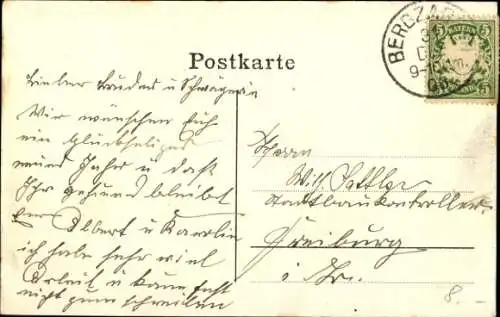 Postkarte
BERGZAB
BAYERN
5 5
Lieber Bruder u Schwägerin
Wir wünschen Euch
ein Glückseliges
neues Jahr u daß
Ihr gesund bleibt
Albert u Karolin
ich habe sehr viel
Arbeit u kann fast
nicht zum schreiben
Herrn
Wilh. Sattler
Stadtbaukontrolleur
Freiburg
i. Br.
8.-